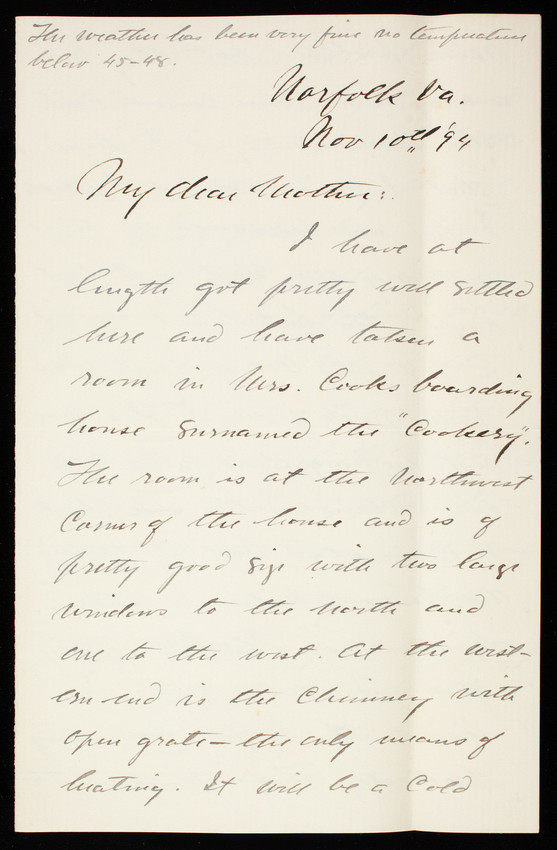 The weather has been very fine no temperature
below 45-48.
Norfolk Va.
Nov 10th '94
My dear Mother:.
I have at
length got pretty well settled
here and have taken a
room in Mrs. Cooks boarding
house surnamed the "Cookery".
The room is at the Northwest
Corner of the house and is of
pretty good size with two large
windows to the north and
one to the west. At the west-
ern end is the Chimney with
open grate - the only means of
heating. It will be a Cold